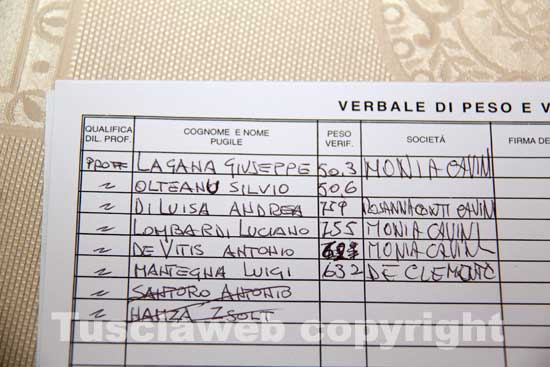 VERBALE DI PESO E V
QUALIFICA DIL. PROF. COGNOME E NOME PUGILE PESO VERIF. SOCIETÁ FIRMA DE
PROFF LAGANA GIUSEPPE 50,3 MONIA CAVINI
~ OLTEANU SILVIO 50,6
~ DI LUISA ANDREA 759 ROSANNA CONTI CAVINI
~ LOMBARDI LUCIANO 755 MONIA CAVINI
~ DE VITIS ANTONIO MONIA CAVINI
~ MANTEGNA LUIGI 632 DE CLEMENTE
~ SANTORO ANTONIO
~ HAMZA ZSOLT
Tusciaweb copyright
Tusciaweb copyright